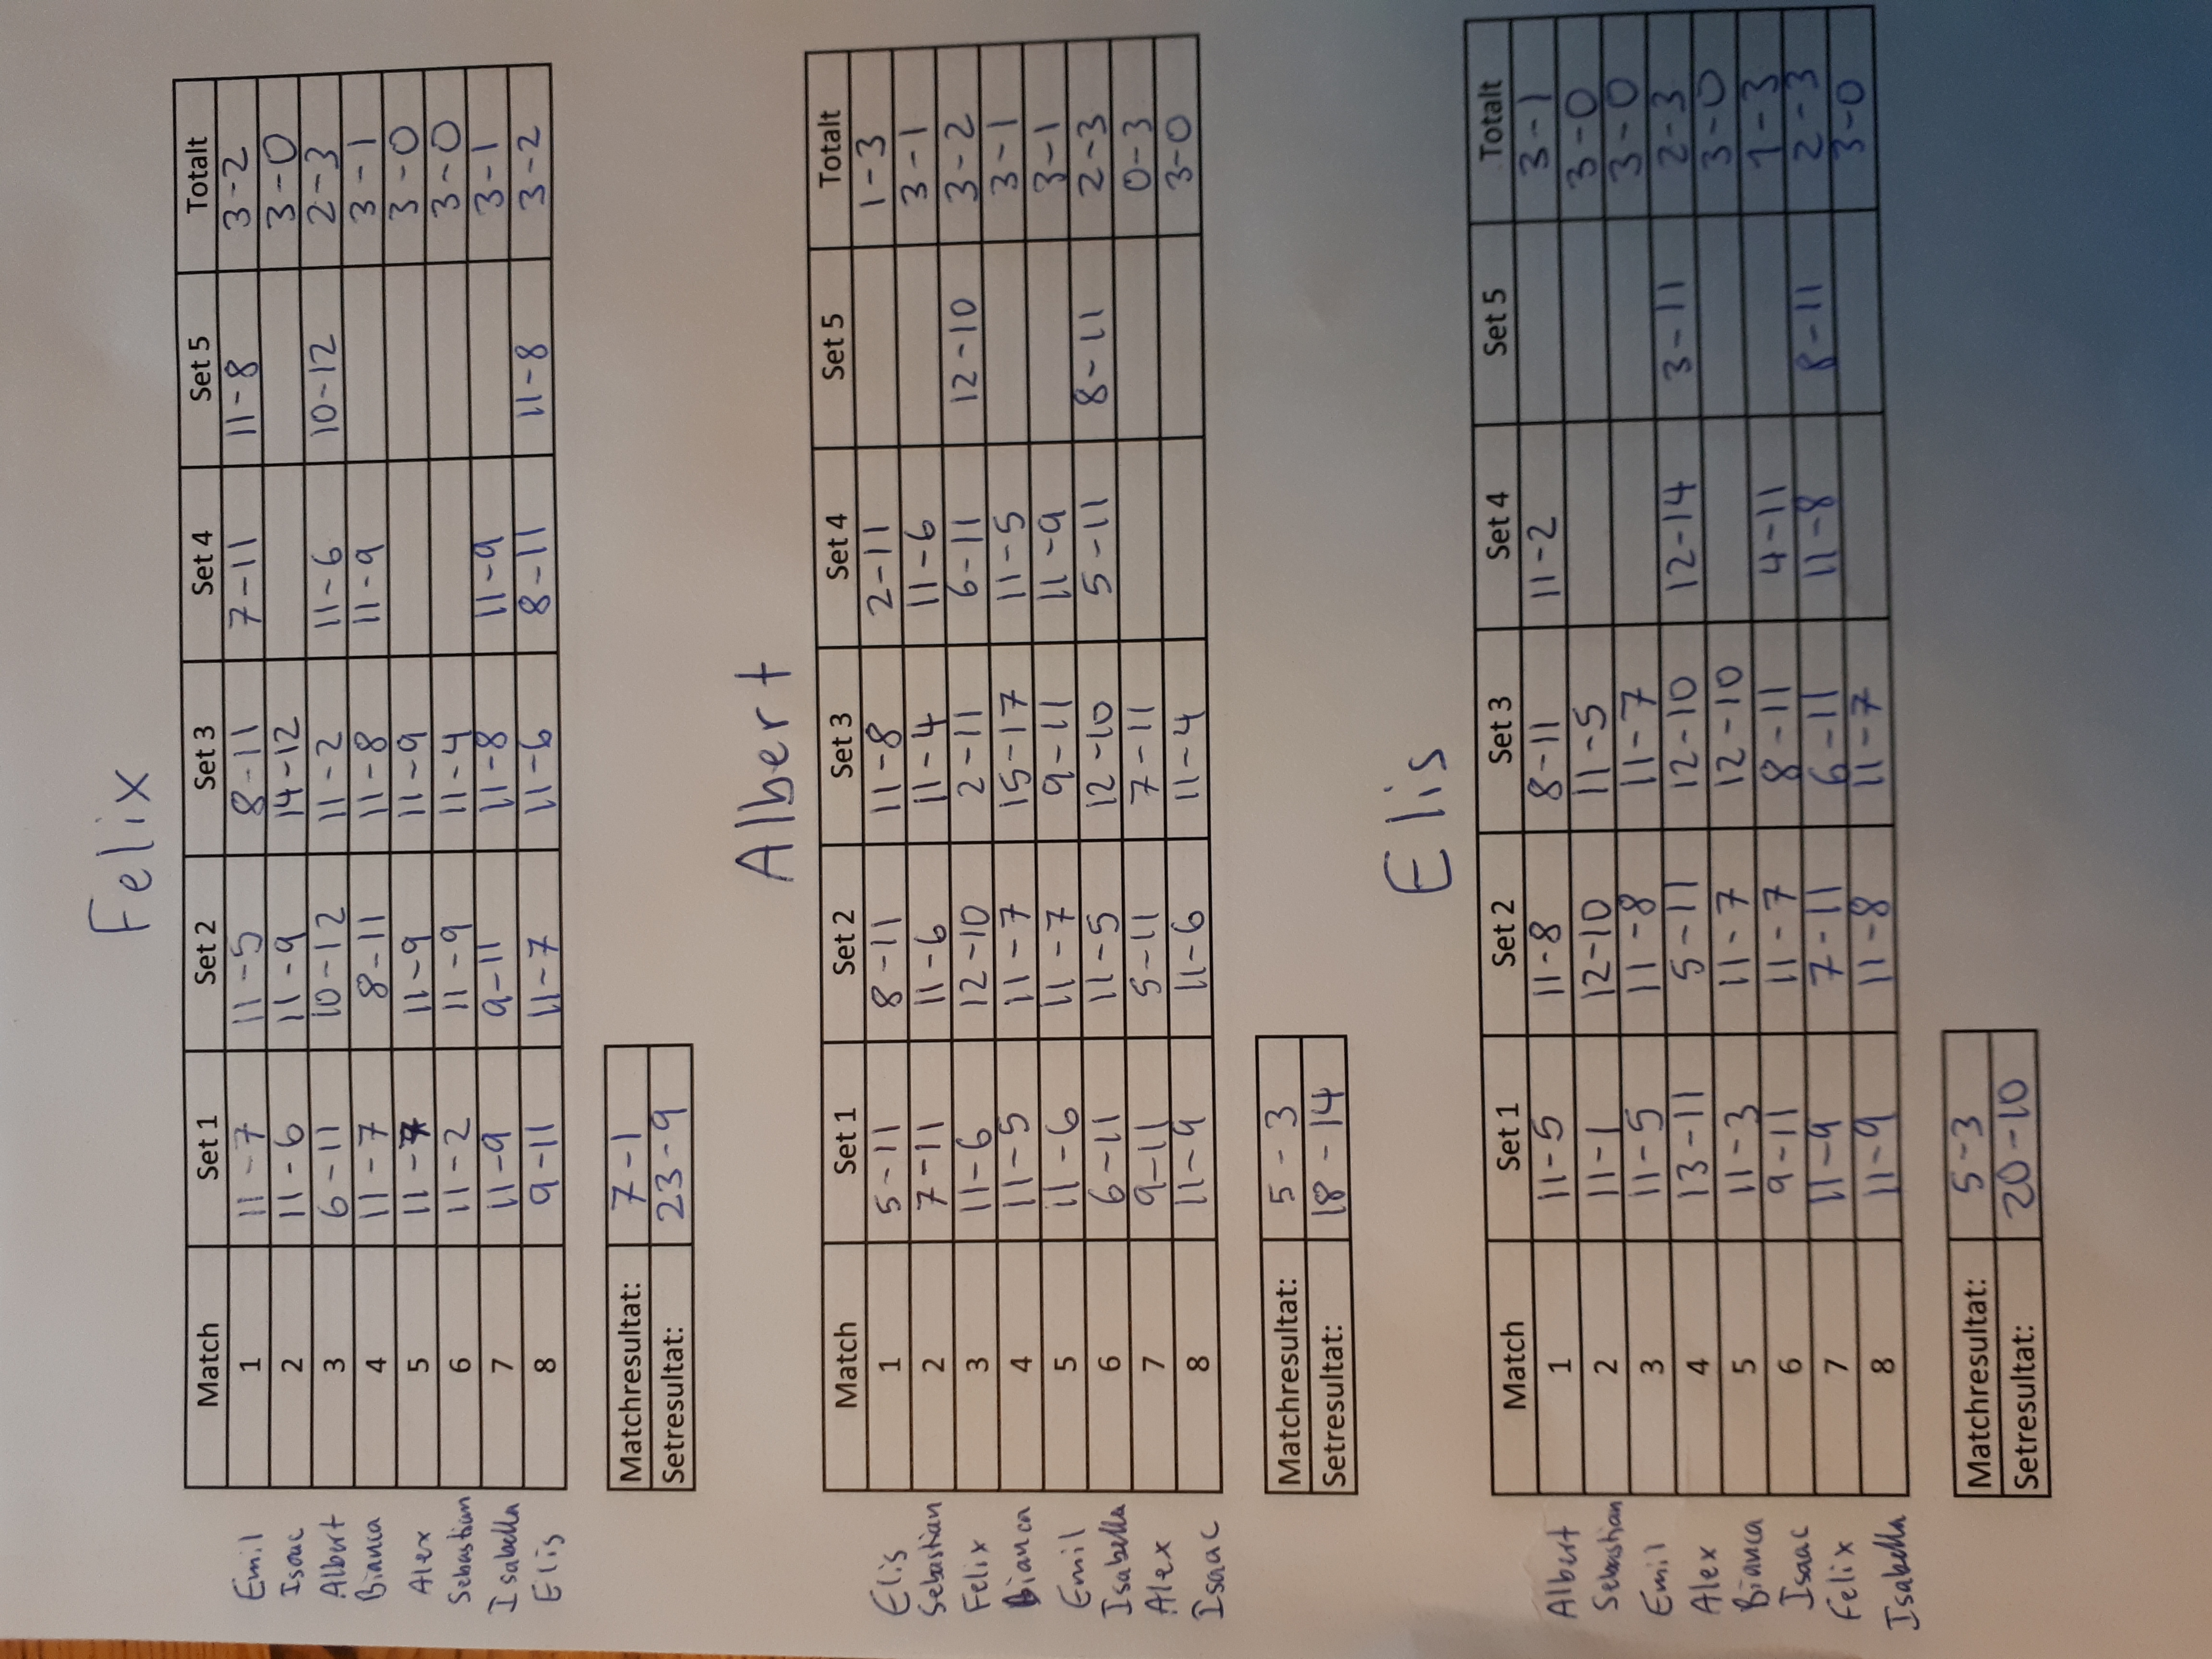 Felix
Match Set 1 Set 2 Set 3 Set 4 Set 5 Totalt
Emil 1 11-7 11-5 8-11 7-11 11-8 3-2
Isaac 2 11-6 11-9 14-12 3-0
Albert 3 6-11 10-12 11-2 11-6 10-12 2-3
Bianca 4 11-7 8-11 11-8 11-9 3-1
Alex 5 11-7 11-9 11-9 3-0
Sebastian 6 11-2 11-9 11-4 3-0
Isabella 7 11-9 9-11 11-8 11-9 3-1
Elis 8 9-11 11-7 11-6 8-11 11-8 3-2
Matchresultat: 7-1
Setresultat: 23-9
Albert
Match Set 1 Set 2 Set 3 Set 4 Set 5 Totalt
Elis 1 5-11 8-11 11-8 2-11 1-3
Sebastian 2 7-11 11-6 11-4 11-6 3-1
Felix 3 11-6 12-10 2-11 6-11 12-10 3-2
Bianca 4 11-5 11-7 15-17 11-5 3-1
Emil 5 11-6 11-7 9-11 11-9 3-1
Isabella 6 6-11 11-5 12-10 5-11 8-11 2-3
Alex 7 9-11 5-11 7-11 0-3
Isaac 8 11-9 11-6 11-4 3-0
Matchresultat: 5-3
Setresultat: 18-14
Elis
Match Set 1 Set 2 Set 3 Set 4 Set 5 Totalt
Albert 1 11-5 11-8 8-11 11-2 3-1
Sebastian 2 11-1 12-10 11-5 3-0
Emil 3 11-5 11-8 11-7 3-0
Alex 4 13-11 5-11 12-10 12-14 3-11 2-3
Bianca 5 11-3 11-7 12-10 3-0
Isaac 6 9-11 11-7 8-11 4-11 1-3
Felix 7 11-9 7-11 6-11 11-8 8-11 2-3
Isabella 8 11-9 11-8 11-7 3-0
Matchresultat: 5-3
Setresultat: 20-10